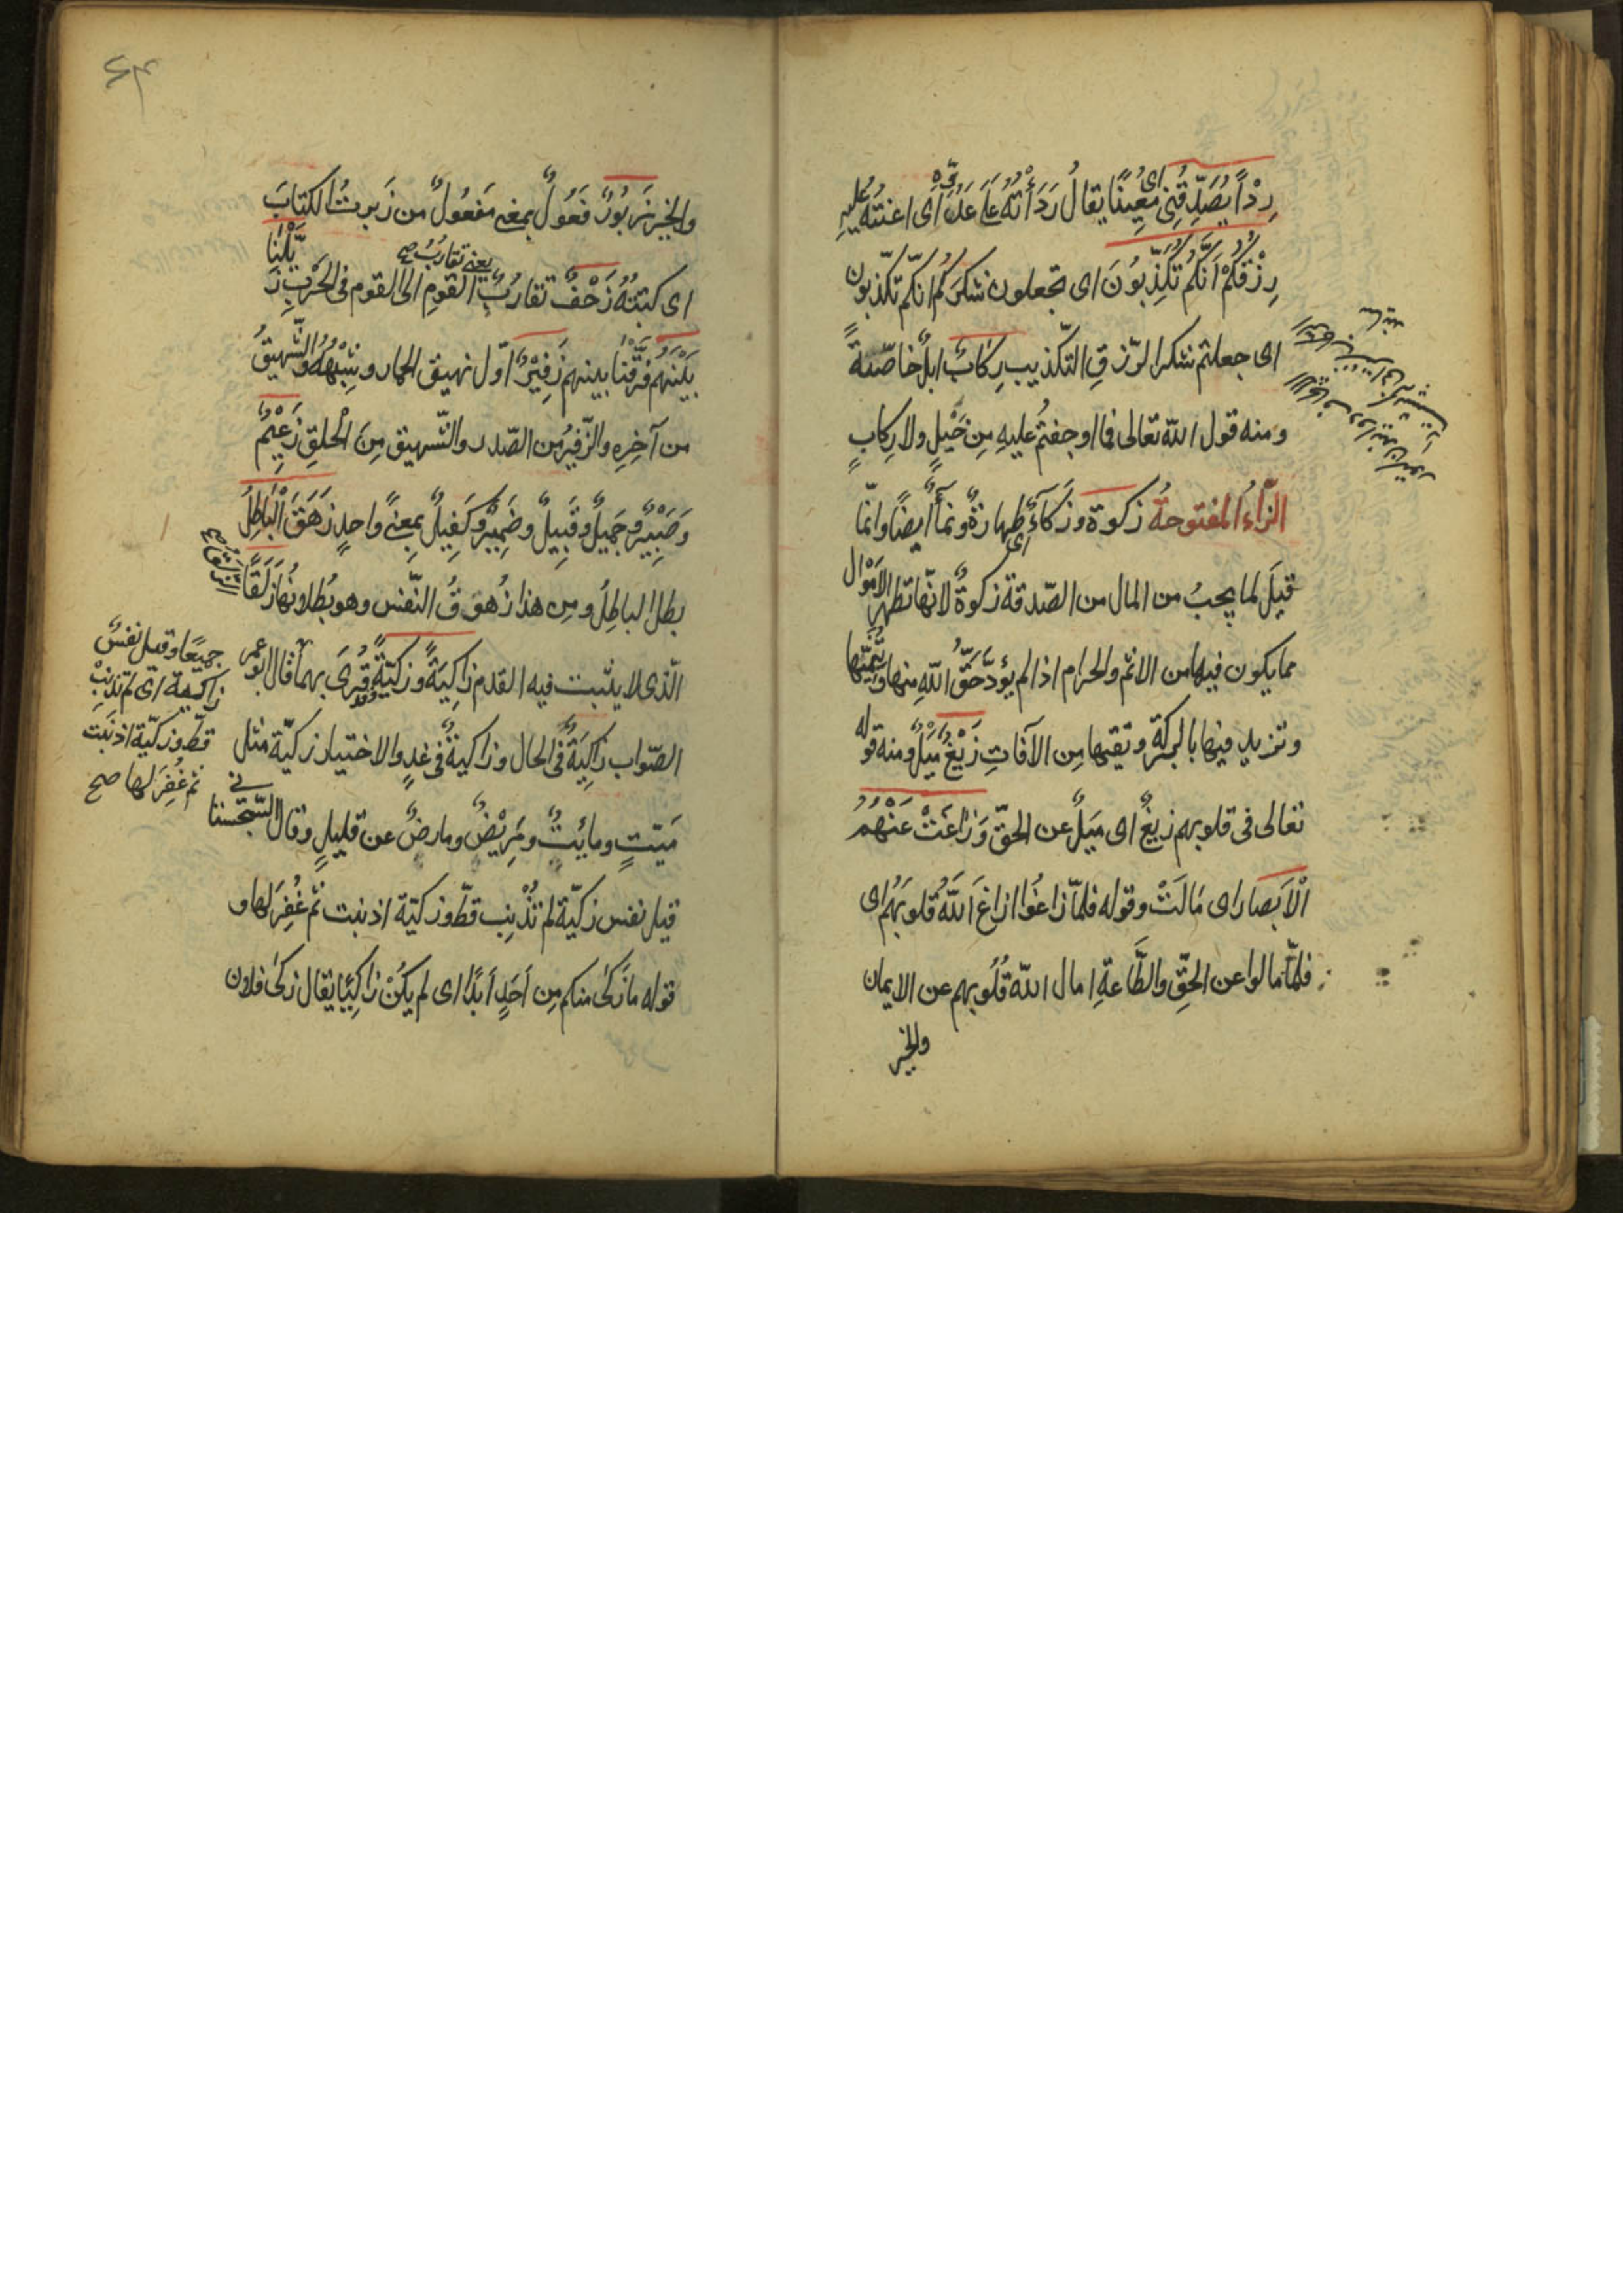 رِدْأً يُصَدِّقُنِي اى مُعِينًا يقالُ رَدَأْتُهُ عَلَى عَدُوِّهِ اى اعنتُهُ عليهِ
رِزْقَكُمْ اَنَّكُمْ تُكَذِّبُونَ اى تجعلون شكرَكُم انّكم تكذّبون
اى جعلتم شكر الرّزقِ التكذيب رِكَابٌ ابلٌ خاصّةً
ومنه قول الله تعالى فما اوجفتُم عليهِ مِن خَيْلٍ ولا رِكابٍ
الزّاءُ المفتوحةُ زكوة وزَكَآءٌ اى طهارةٌ ونمآءٌ ايضًا وانّما
قيلَ لما يجبُ من المال من الصّدقة زكوةٌ لانّها تطهر الاَمْوَال
مما يكون فيها من الاثم والحرام اذا لم يؤدَّ حَقُّ اللهِ منها وتُنَمِّيها
وتزيد فيها بالبركة وتقيها مِن الآفاتِ زَيْغٌ مَيْلٌ ومنه قوله
تعالى فى قلوبهم زيغٌ اى مَيلٌ عن الحقّ وَزَاغَتْ عَنْهُمُ
الْاَبْصار اى مَالَتْ وقوله فلمّا زاغُوا ازاغَ اَللّهُ قلوبَهُم اى
فلمّا مالوا عن الحقِّ والطَّاعةِ امال اللهُ قُلُوبهم عن الايمان
والخير
والخير زَبُورٌ فَعُولٌ بمعنى مَفعُولٌ من زَبرتُ الكتابَ
اى كتبتهُ زَحْفٌ تقارُبُ القومِ الى القوم فى الحَرْبِ زَيَّلْنَا
يعنى تقارُبُ صح
بَيْنَهُم فَرَّقْنَا بينهم زَفِيْرٌ اوّل نهيق الحمار وشِبْهُهُ والشَّهيقُ
من آخِرِه والزّفيرُ من الصّدر والشّهيق مِنَ الْحلقِ زَعِيْمٌ
وَصَبِيْرٌ وحَمِيلٌ وقَبِيلٌ وضَمِيْرٌ وكَفِيلٌ بمعنىً واحدٍ زَهَقَ الْباطِلُ
بطل الباطِلُ ومِن هذا زُهوقُ النّفس وهو بُطلانُهَا زَلَقًا
الّذى لا يثبت فيه القدم زَاكِيَةً وزكيّةً وقد قُرِىَ بهما قال ابو عمر
الصّواب زاكِيَةٌ فى الحال وزاكيةٌ فى غدٍ والاختيار زكيّة مثل
مَيّتٍ ومائِتٍ ومَرِيْضٌ ومارضٌ عن قليلٍ وقال السّجستانى
قيل نفس زكيّة لم تُذْنِب قطّ وزكيّة اذنبت ثم غُفِرَ لها و
قوله ما زَكىٰ منكم مِن اَحَدٍ اَبدًا اى لم يكُنْ زاكِيًا يقال زكىٰ فلان
جميعًا وقيل نفسٌ
زاكية اى لم تذنِبْ
قطّ وزكيّة اذنبت
ثم غُفِرَ لها صح